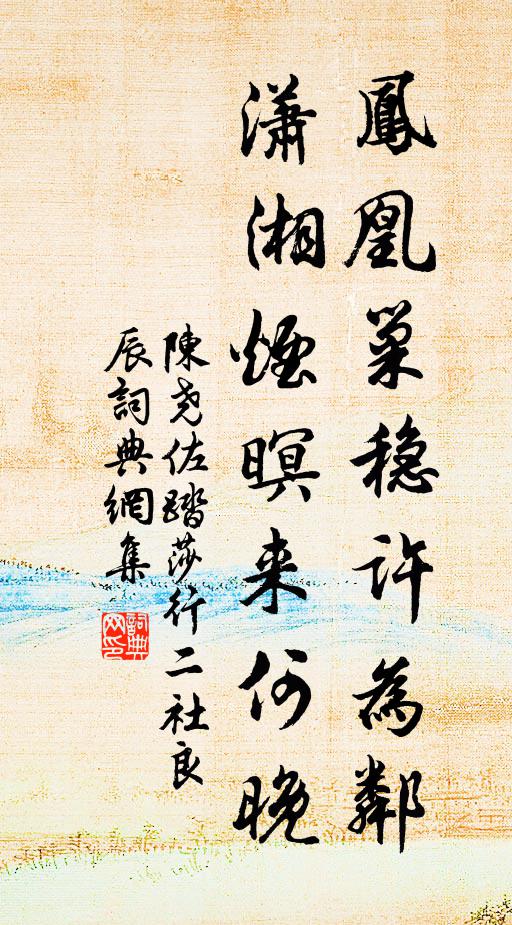 鳳凰巢穩許為鄰
瀟湘煙暝来何晚
陳尧佐踏莎行二社良
辰詞典網集
詞典网印